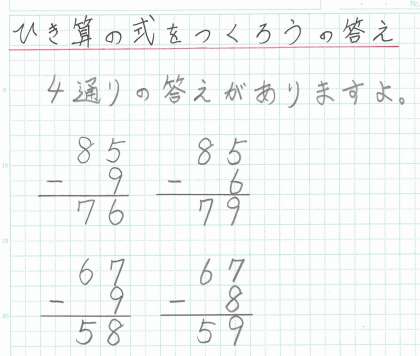 ひき算の式をつくろうの答え
4通りの答えがありますよ。
85 85
- 9 - 6
76 79
67 67
- 9 - 8
58 59